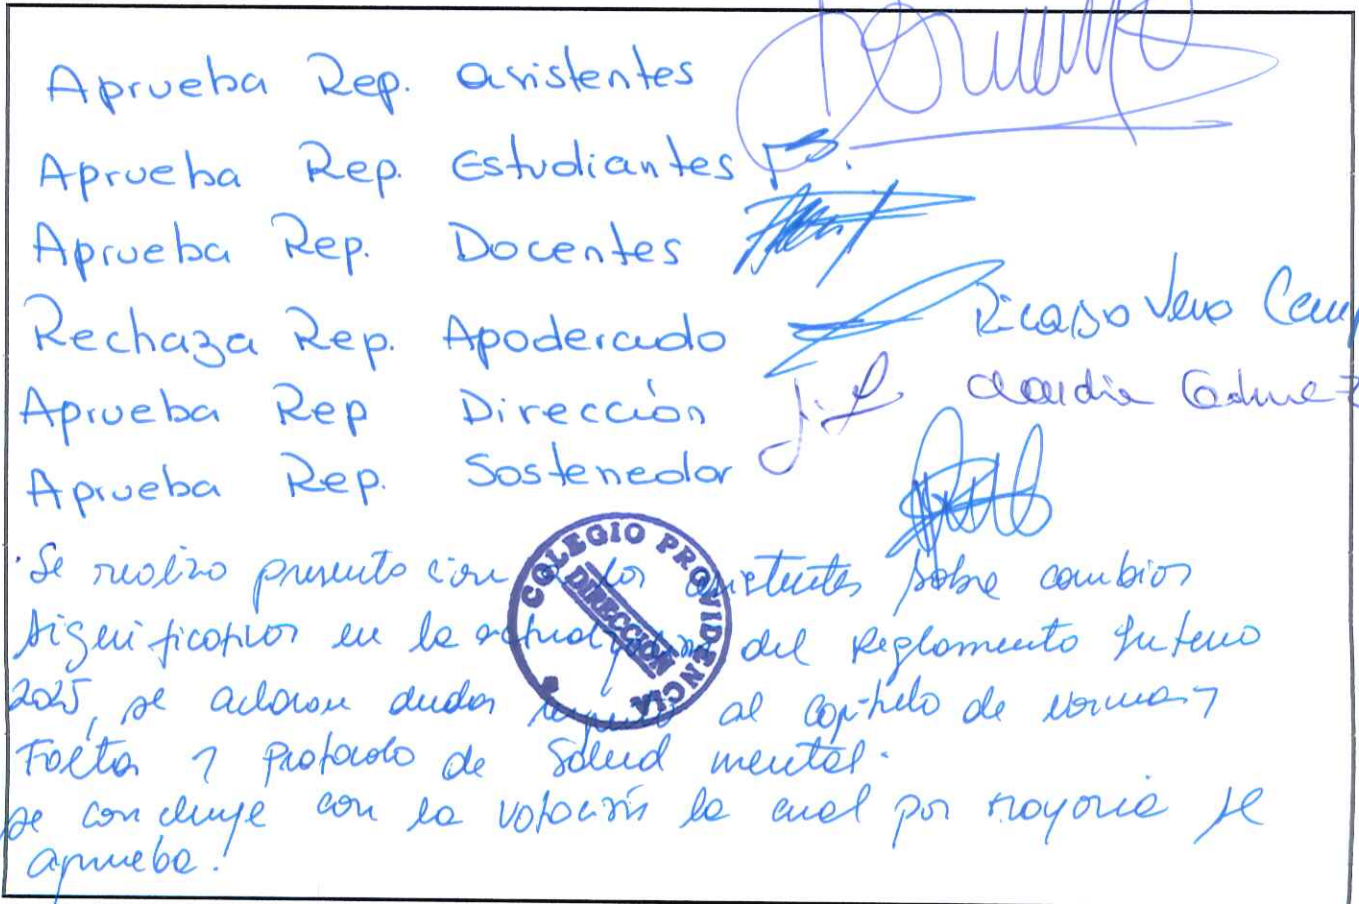 Aprueba Rep. asistentes
Aprueba Rep. Estudiantes
Aprueba Rep. Docentes
Rechaza Rep. Apoderado
Aprueba Rep Dirección
Claudia
Aprueba Rep. Sostenedor
COLEGIO PROVIDENCIA
DIRECCIÓN
Se realizo presentacion a los asistentes sobre cambios
significativos en la actualización del Reglamento Interno
2025, se aclaran dudas al capitulo de normas y
Faltas y protocolo de Salud mental.
se concluye con la votación la cual por mayoria se
aprueba.